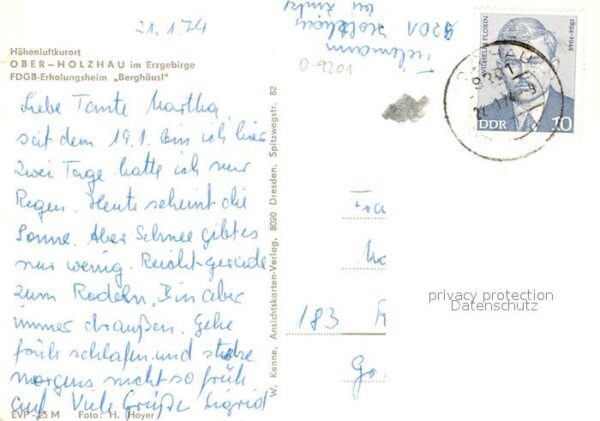 21.1.74
Höhenluftkurort
OBER-HOLZHAU im Erzgebirge
FDGB-Erholungsheim „Berghäusl"
Liebe Tante Martha,
seit dem 19.1. bin ich hier
zwei Tage hatte ich nur
Regen. Heute scheint die
Sonne. Aber Schnee gibt es
nur wenig. Reicht gerade
zum Rodeln. Bin aber
immer draußen. Gehe
früh schlafen und stehe
morgens nicht so früh
auf. Viele Grüße Sigrid
EVP -23 M Foto: H. Hoyer
W. Kenne, Ansichtskarten-Verlag, 8020 Dresden, Spitzwegstr. 82
9201
O-9201
WILHELM FLORIN
1894-1944
DDR 10
9201
183
privacy protection
Datenschutz